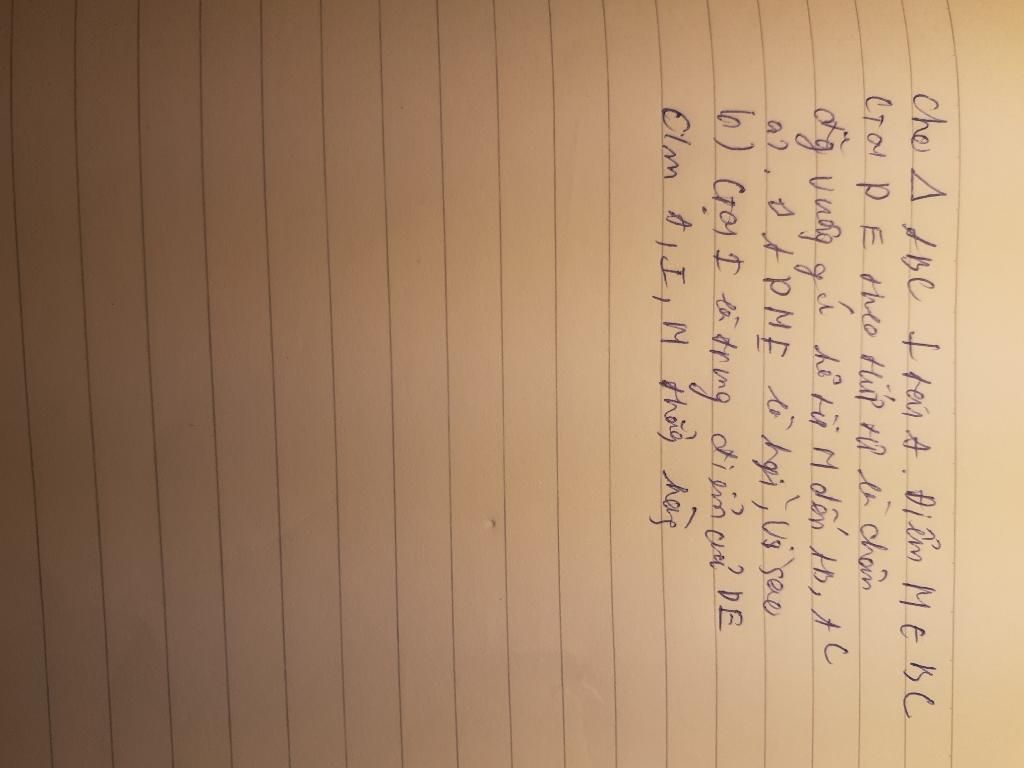 Cho Δ ABC ⊥ tại A. Điểm M ∈ BC
Gọi D E theo tiếp tự là chân
đg vuông g kẻ từ M đến AB, AC
a). A D M E là hgì, Vì sao
b) Gọi I là trung điểm của DE
C/m A, I, M thẳng hàng